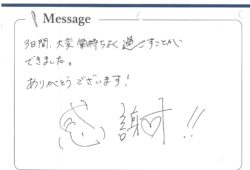 Message
3日間、大変気持ちよく過ごすことが
できました。
ありがとうございます！
感謝♡!!